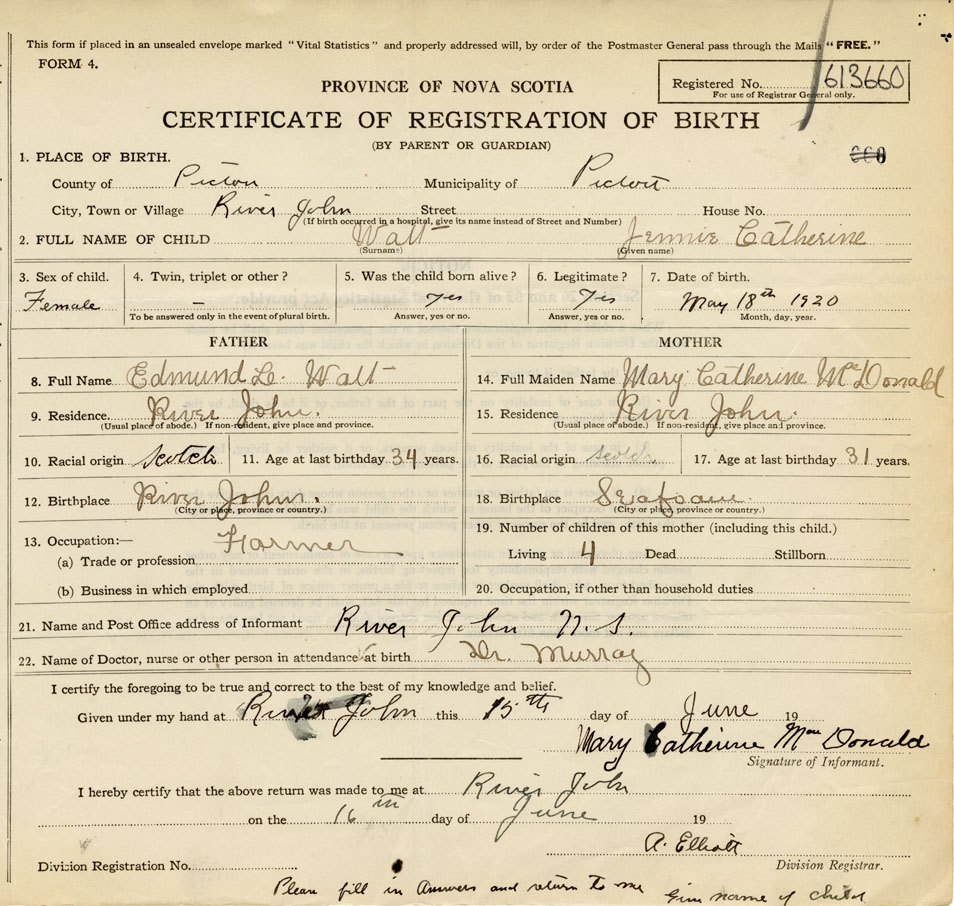 This form if placed in an unsealed envelope marked "Vital Statistics" and properly addressed will, by order of the Postmaster General pass through the Mails "FREE."
FORM 4.
Registered No. 613660
For use of Registrar General only.
PROVINCE OF NOVA SCOTIA
CERTIFICATE OF REGISTRATION OF BIRTH
(BY PARENT OR GUARDIAN)
660
1. PLACE OF BIRTH.
County of Pictou Municipality of Pictou
City, Town or Village River John Street House No.
(If birth occurred in a hospital, give its name instead of Street and Number)
2. FULL NAME OF CHILD Watt Jennie Catherine
(Surname) (Given name)
3. Sex of child. 4. Twin, triplet or other? 5. Was the child born alive? 6. Legitimate? 7. Date of birth.
Female — Yes Yes May 18th 1920
To be answered only in the event of plural birth. Answer, yes or no. Answer, yes or no. Month, day, year.
FATHER MOTHER
8. Full Name Edmund L. Watt 14. Full Maiden Name Mary Catherine McDonald
9. Residence. River John. 15. Residence River John.
(Usual place of abode.) If non-resident, give place and province. (Usual place of abode.) If non-resident, give place and province.
10. Racial origin Scotch 11. Age at last birthday 34 years. 16. Racial origin Scotch 17. Age at last birthday 31 years.
12. Birthplace River John. 18. Birthplace Seafoam
(City or place, province or country.) (City or place, province or country.)
13. Occupation:— Farmer 19. Number of children of this mother (including this child.)
(a) Trade or profession Living 4 Dead Stillborn
(b) Business in which employed 20. Occupation, if other than household duties
21. Name and Post Office address of Informant River John N.S.
22. Name of Doctor, nurse or other person in attendance at birth Dr. Murray
I certify the foregoing to be true and correct to the best of my knowledge and belief.
Given under my hand at River John this 15th day of June 19
Mary Catherine MacDonald
Signature of Informant.
I hereby certify that the above return was made to me at River John
on the 16th day of June 19
A. Elliott
Division Registration No. Division Registrar.
Please fill in Answers and return to me Give name of child